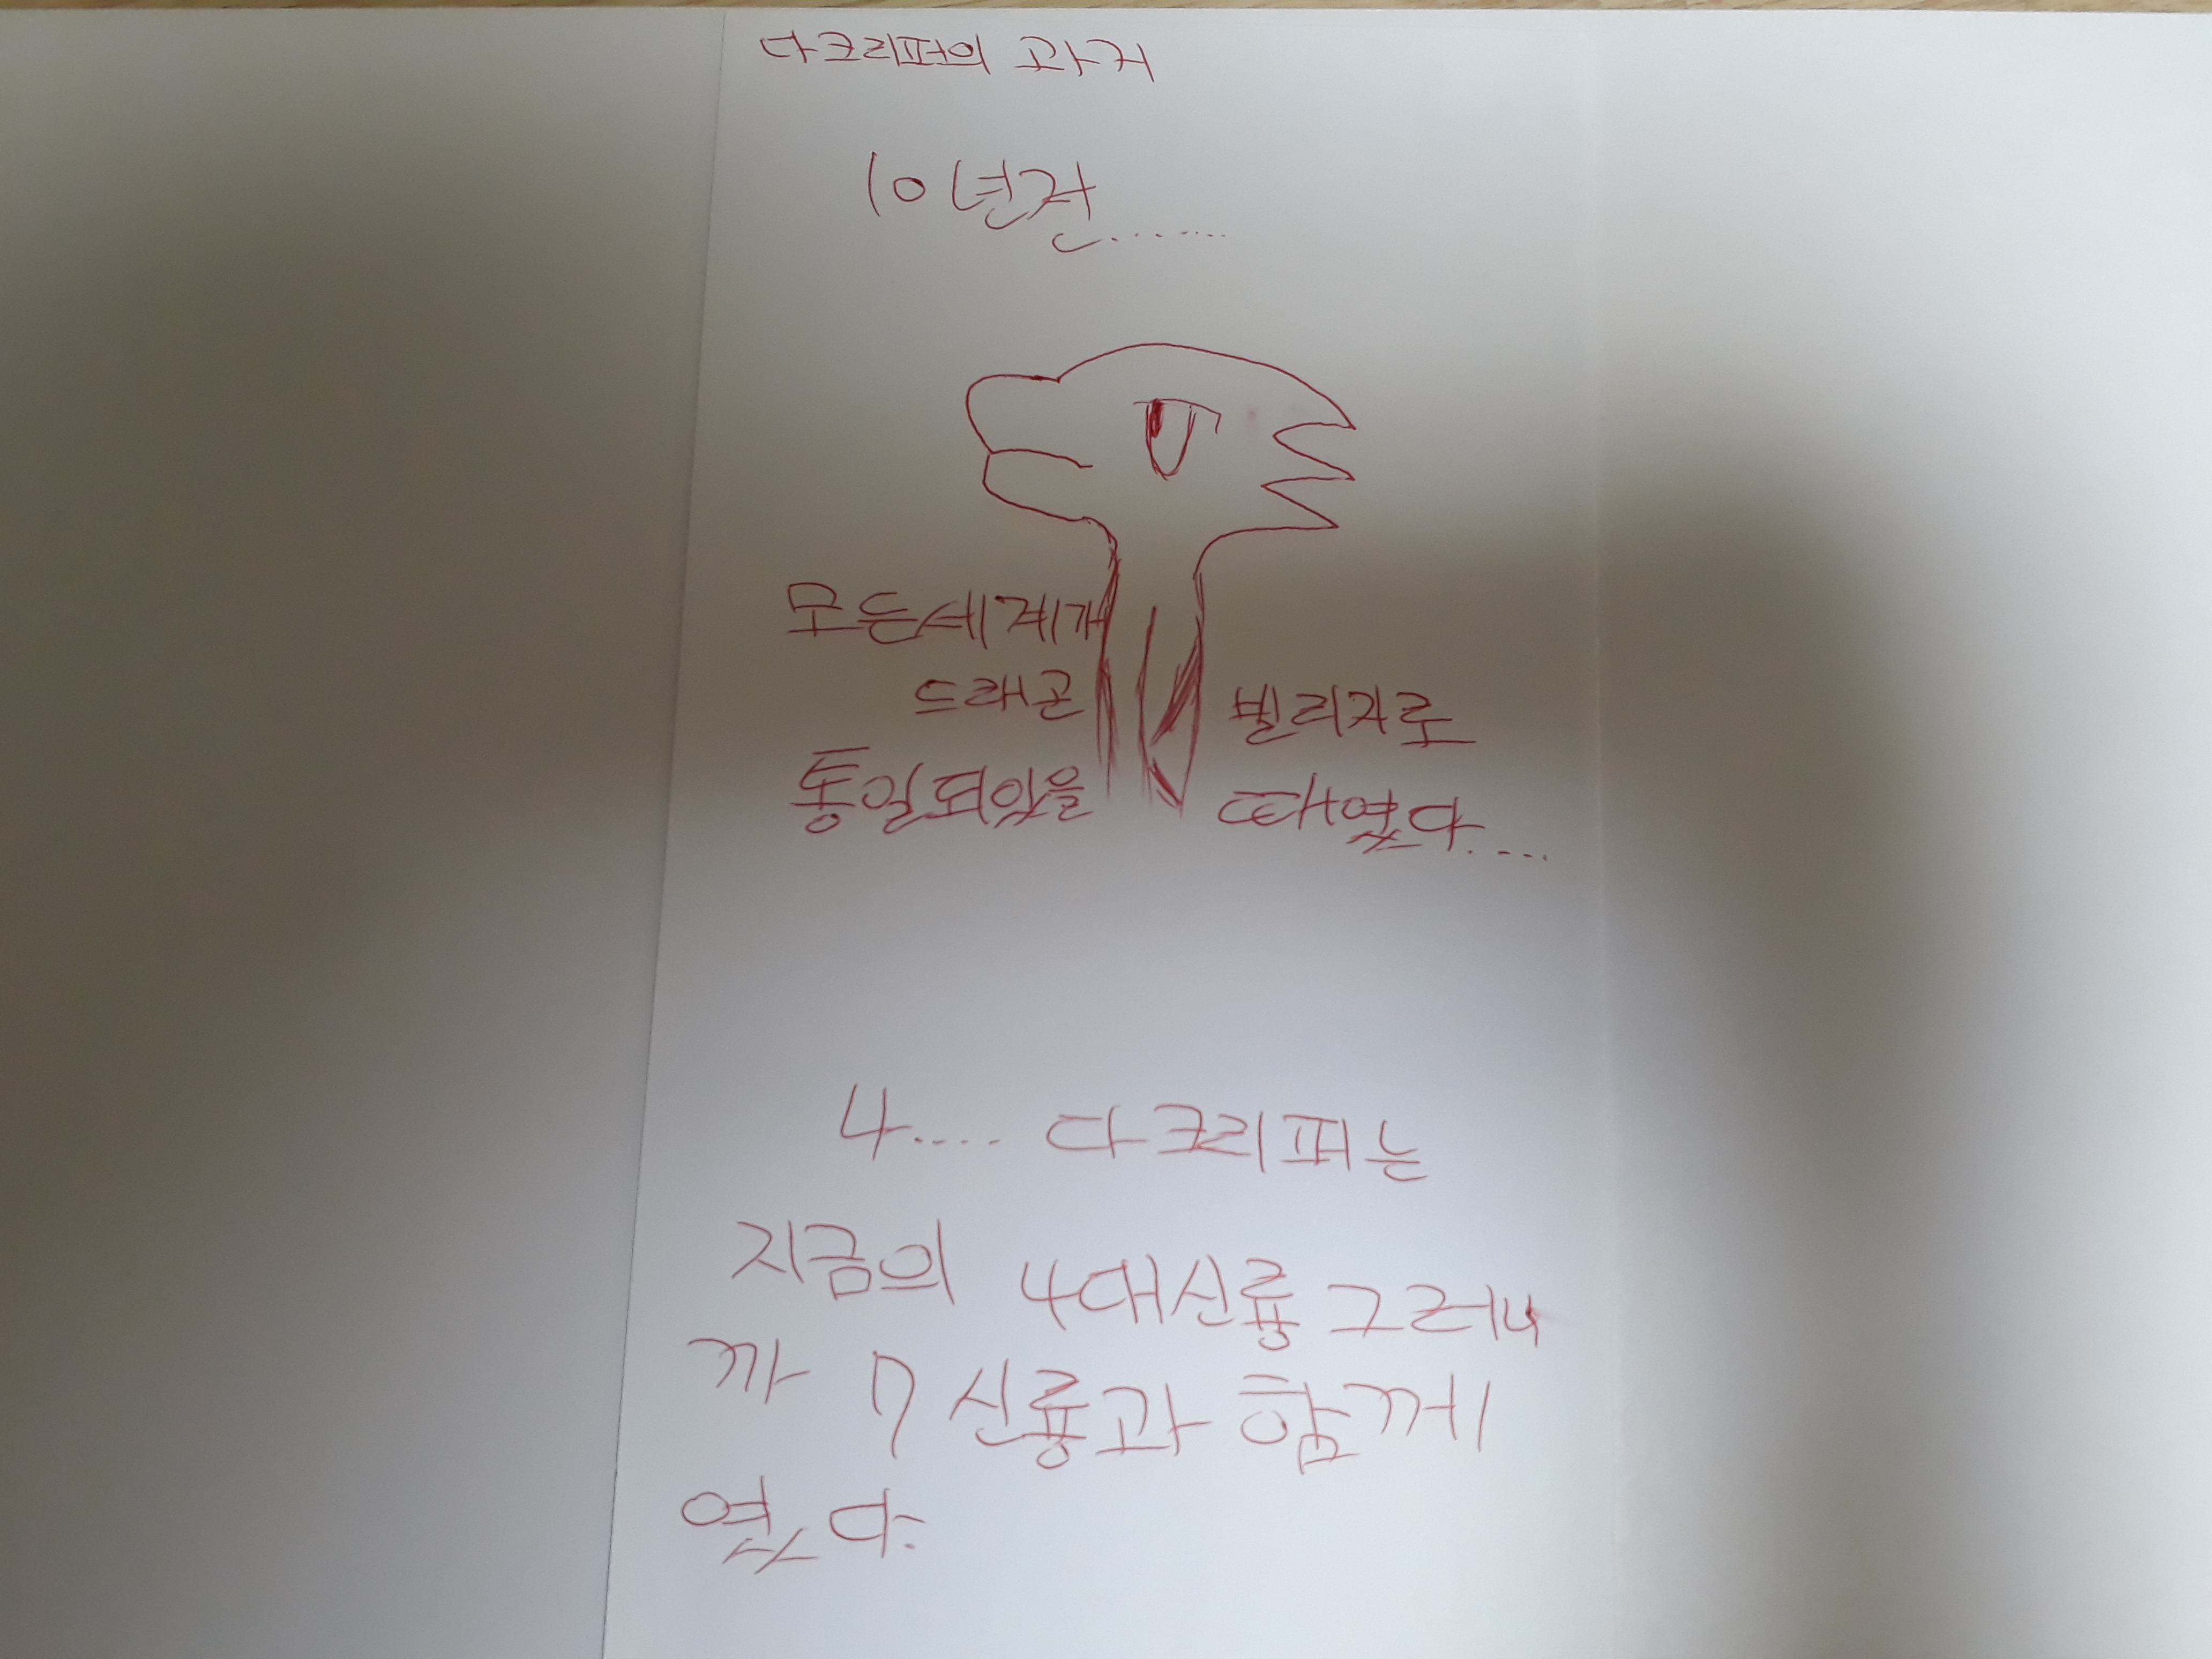 다크리퍼의 과거
10년전........
모든세계가
드래곤 빌리지로
통일되있을 때였다....
4.... 다크리퍼는
지금의 4대신룡 그러니
까 7신룡과 함께
였다.